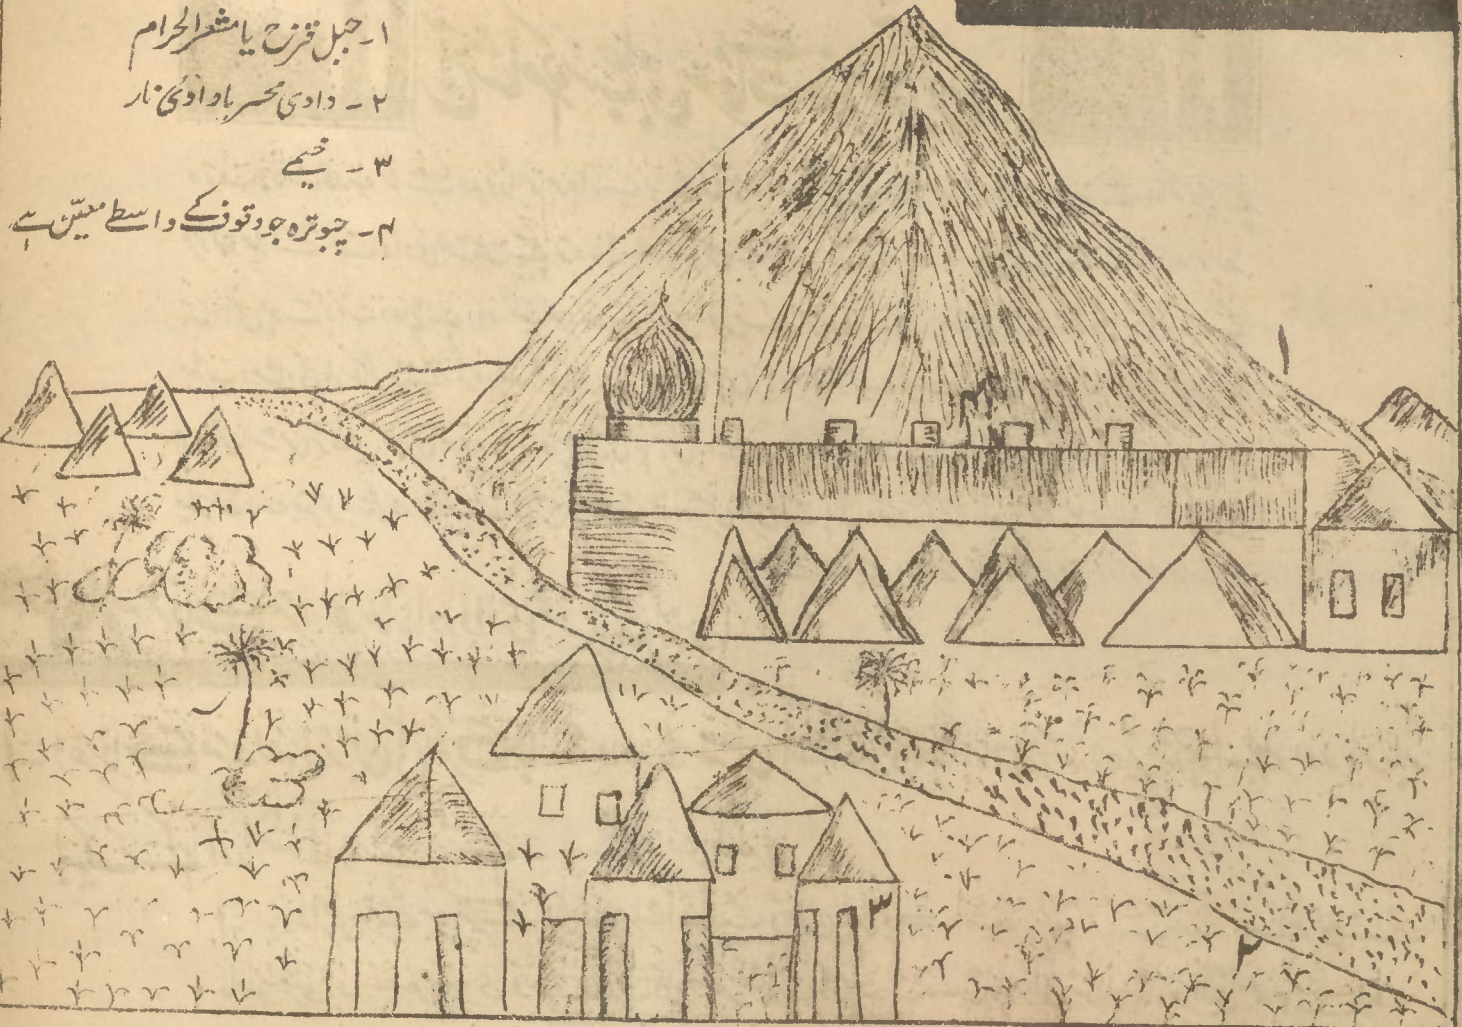 ۱۔ جبل قزح یا مشعر الحرام
۲۔ وادی محسر یا وادئ نار
۳۔ خیمے
۴۔ چبوترہ جو وقوف کے واسطے معیّن ہے
۱
۳
۲